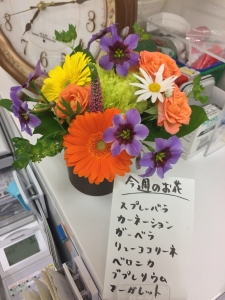 今週のお花
スプレーバラ
カーネーション
ガーベラ
リューココリーネ
ベロニカ
ブプレリウム
マーガレット